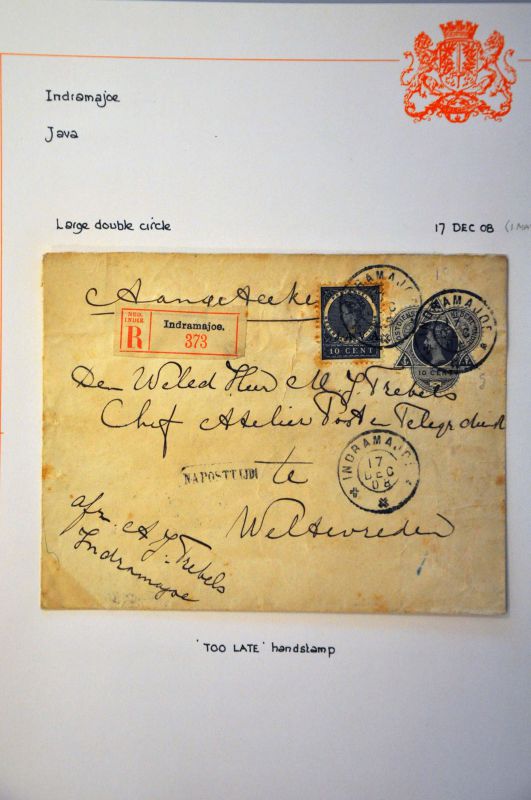 Indramajoe
Java
Large double circle
17 DEC 08
Aangeteeke
NED. INDIE
R
Indramajoe.
373
10 CENT
INDRAMAJOE
10 CENT
Den Weled Heer M. J. Trebels
Chef Atelier Post en Telegr dienst
te
NAPOSTTIJD
INDRAMAJOE
17
DEC
08
Weltevreden
afz. A. J. Trebels
Indramajoe
'TOO LATE' handstamp